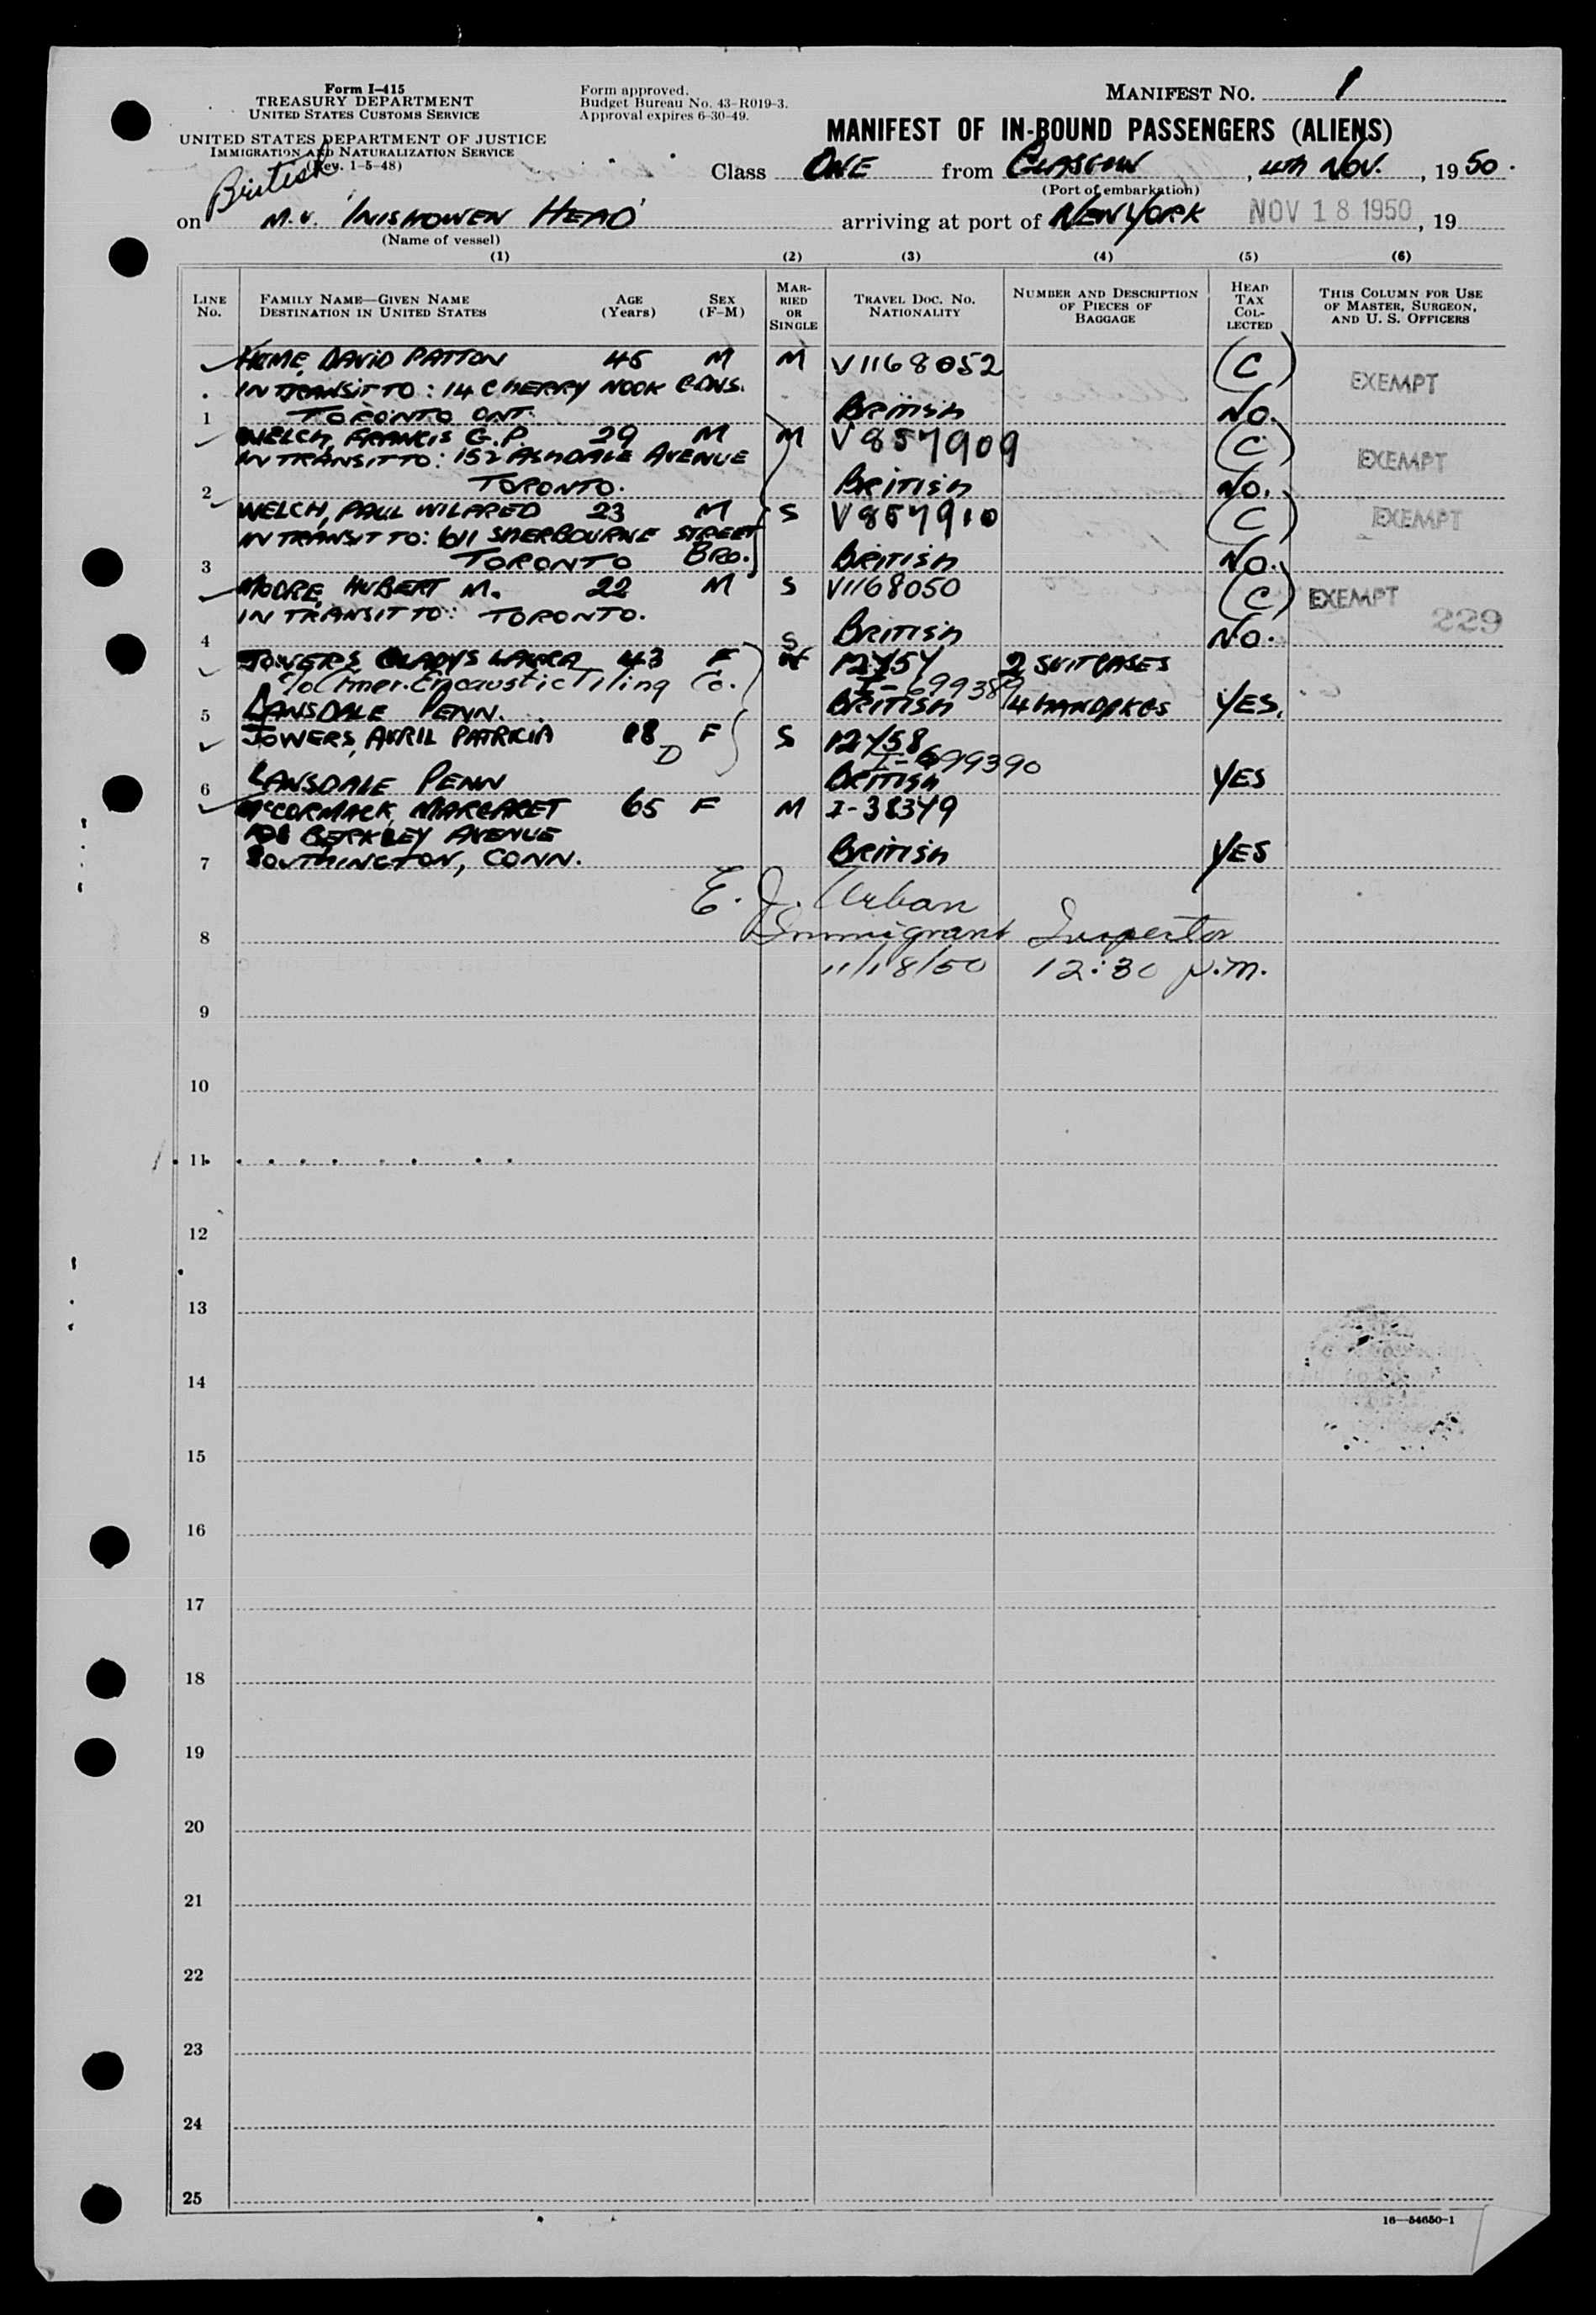 Form I-415
TREASURY DEPARTMENT
UNITED STATES CUSTOMS SERVICE
UNITED STATES DEPARTMENT OF JUSTICE
IMMIGRATION AND NATURALIZATION SERVICE
(Rev. 1-5-48)
Form approved.
Budget Bureau No. 43-R019-3.
Approval expires 6-30-49.
MANIFEST NO. 1
MANIFEST OF IN-BOUND PASSENGERS (ALIENS)
Class ONE from GLASGOW, 4TH NOV., 1950.
(Port of embarkation)
British
on M.V. 'INISHOWEN HEAD' arriving at port of NEW YORK NOV 18 1950, 19
(Name of vessel)
(1) (2) (3) (4) (5) (6)
LINE No.
FAMILY NAME—GIVEN NAME
DESTINATION IN UNITED STATES
AGE (Years)
SEX (F-M)
MARRIED OR SINGLE
TRAVEL DOC. NO.
NATIONALITY
NUMBER AND DESCRIPTION OF PIECES OF BAGGAGE
HEAD TAX COLLECTED
THIS COLUMN FOR USE OF MASTER, SURGEON, AND U. S. OFFICERS
HUME, DAVID PATTON 45 M M V1168052 (C) EXEMPT
IN TRANSIT TO: 14 CHERRY NOOK GDNS.
1 TORONTO ONT. BRITISH NO.
WELCH, FRANCIS G.P. 29 M M V857909 (C) EXEMPT
IN TRANSIT TO: 152 ASHDALE AVENUE
2 TORONTO. BRITISH NO.
WELCH, PAUL WILFRED 23 M S V857910 (C) EXEMPT
IN TRANSIT TO: 611 SHERBOURNE STREET
3 TORONTO BRO. BRITISH NO.
MOORE, HUBERT M. 22 M S V1168050 (C) EXEMPT
IN TRANSIT TO: TORONTO. 229
4 BRITISH NO.
JOWERS, GLADYS LAURA 43 F S 12457 2 SUITCASES
c/o Amer. Encaustic Tiling Co. I-699389
5 LANSDALE PENN. BRITISH 4 HANDPKGS YES.
JOWERS, AVRIL PATRICIA 18 F S 12458
D I-699390
6 LANSDALE PENN BRITISH YES
McCORMACK, MARGARET 65 F M I-38349
108 BERKLEY AVENUE
7 SOUTHINGTON, CONN. BRITISH YES
E. J. Urban
8 Immigrant Inspector
11/18/50 12:30 p.m.
9
10
11
12
13
14
15
16
17
18
19
20
21
22
23
24
25
16—54650-1